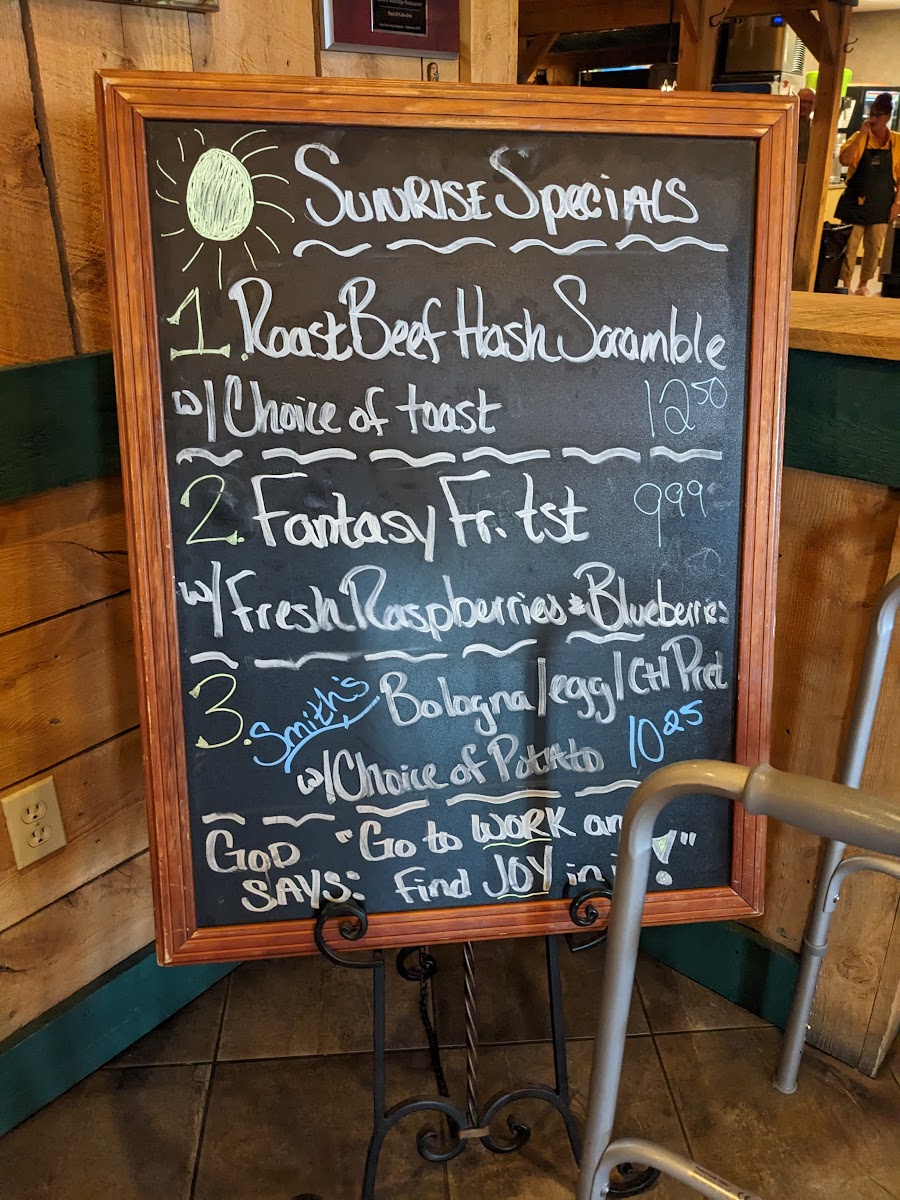 Sunrise Specials
1. Roast Beef Hash Scramble
w/ Choice of toast 12 50
2. Fantasy Fr. tst 9 99
w/ Fresh Raspberries & Blueberries
3. Smith's Bologna/egg/CH Pretz
w/ Choice of Potato 10 25
GOD "Go to WORK an
SAYS: find JOY in i !"